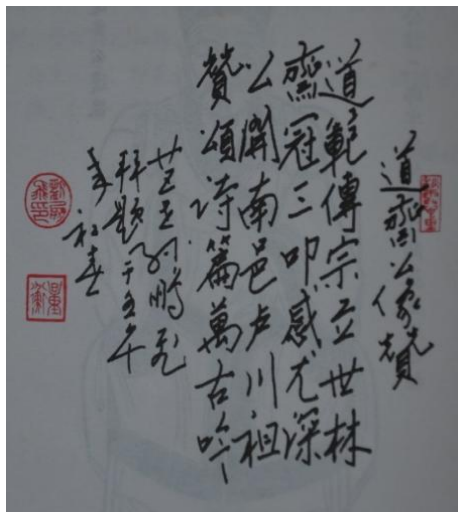 道齋公像贊
道範傳宗立世林
齋冠三叩感尤深
公開南邑卢川祖
贊頌诗篇萬古吟
孙鵬飞
拜题于壬午
年初春